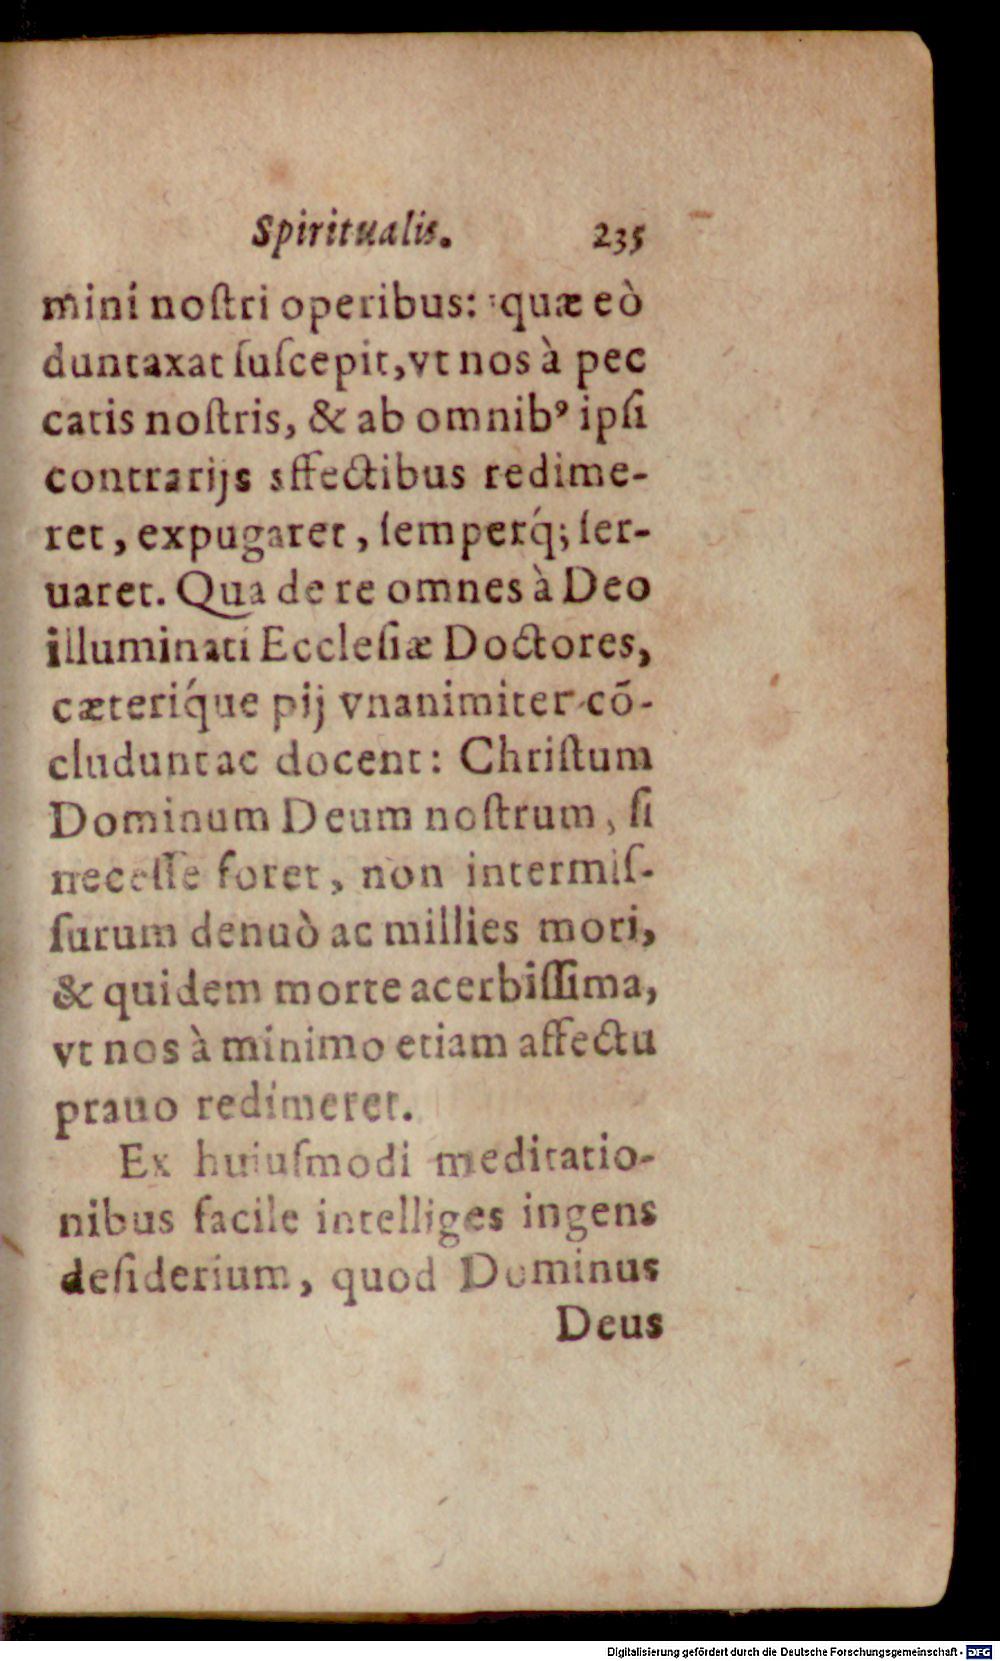 Spiritualis. 235
mini noſtri operibus: quæ eò
duntaxat ſuſcepit, vt nos à pec
catis noſtris, & ab omnibꝰ ipſi
contrarijs affectibus redime-
ret, expugaret, ſemperq́; ſer-
uaret. Qua de re omnes à Deo
illuminati Eccleſiæ Doctores,
cæteriq́ue pij vnanimiter cō-
cludunt ac docent: Chriſtum
Dominum Deum noſtrum, ſi
neceſſe foret, non intermiſ-
ſurum denuò ac millies mori,
& quidem morte acerbiſſima,
vt nos à minimo etiam affectu
prauo redimeret.
Ex huiuſmodi meditatio-
nibus facile intelliges ingens
deſiderium, quod Dominus
Deus
Digitalisierung gefördert durch die Deutsche Forschungsgemeinschaft - DFG